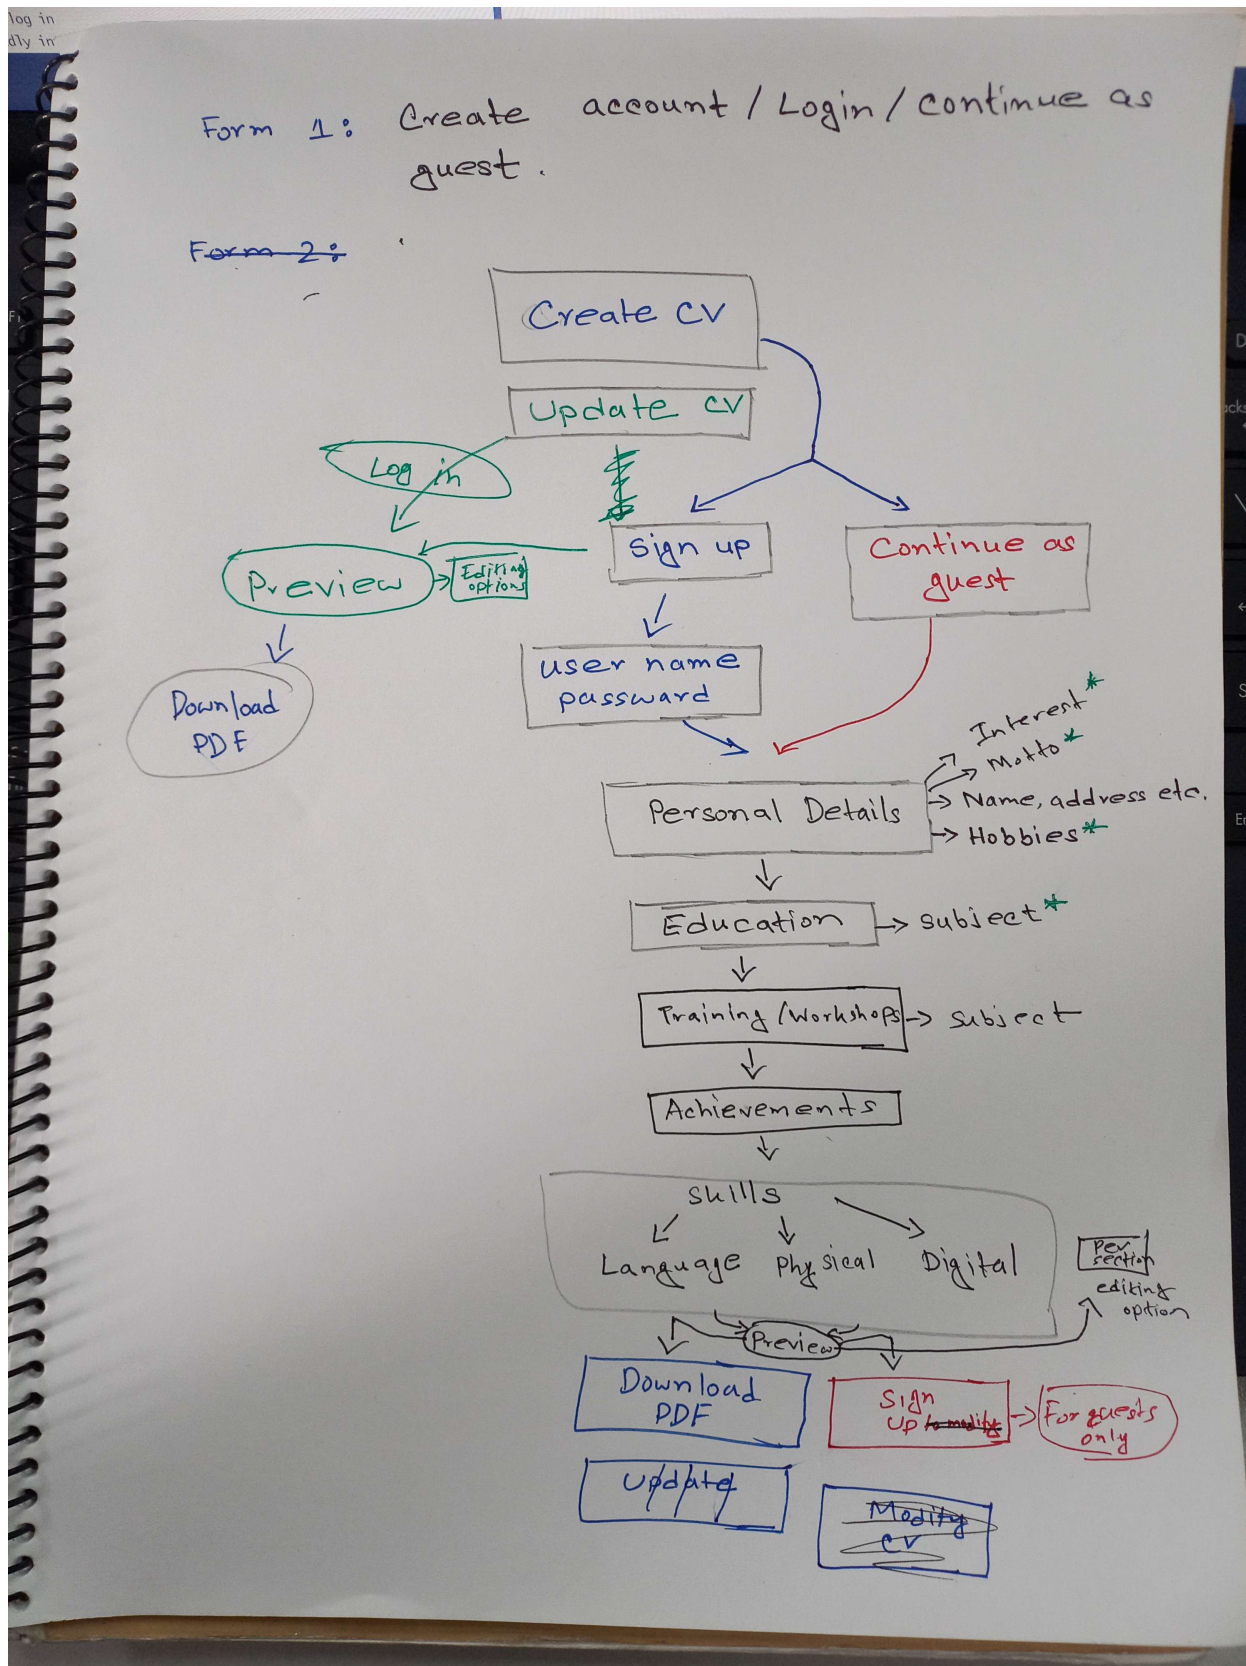 log in
dly in
Form 1: Create account / Login / continue as
guest.
Form 2:
Create CV
Update CV
Log in
Sign up
Continue as
guest
Preview
Editing
options
user name
passward
Download
PDF
Interest*
Motto*
Personal Details
Name, address etc.
Hobbies*
Education
subject*
Training / Workshops
subject
Achievements
Skills
Language Physical Digital
Per
section
editing
option
Preview
Download
PDF
Sign
up to modify
For guests
only
Update
Modify
CV